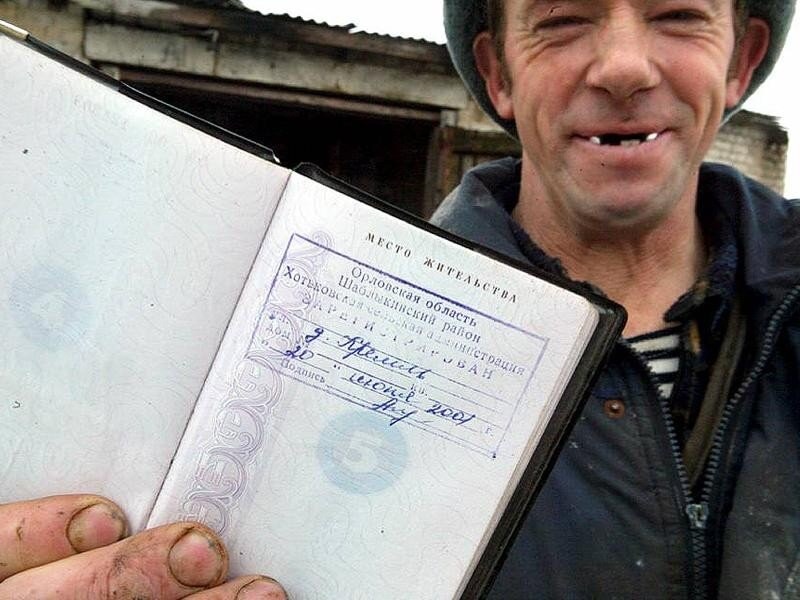 МЕСТО ЖИТЕЛЬСТВА
Орловская область
Шаблыкинский район
Хотьковская сельская администрация
ЗАРЕГИСТРИРОВАН
д. Кремль
дом кв.
" 20 " июня 2001 г.
Подпись
4
5